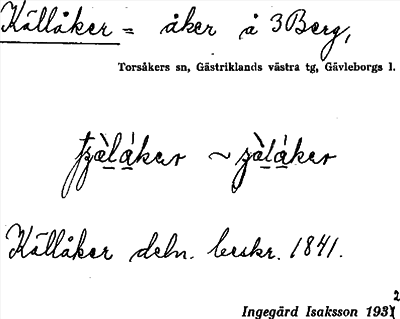 Källåker = åker å 3 Berg,
Torsåkers sn, Gästriklands västra tg, Gävleborgs l.
Källåker deln. beskr. 1841.
Ingegärd Isaksson 1932